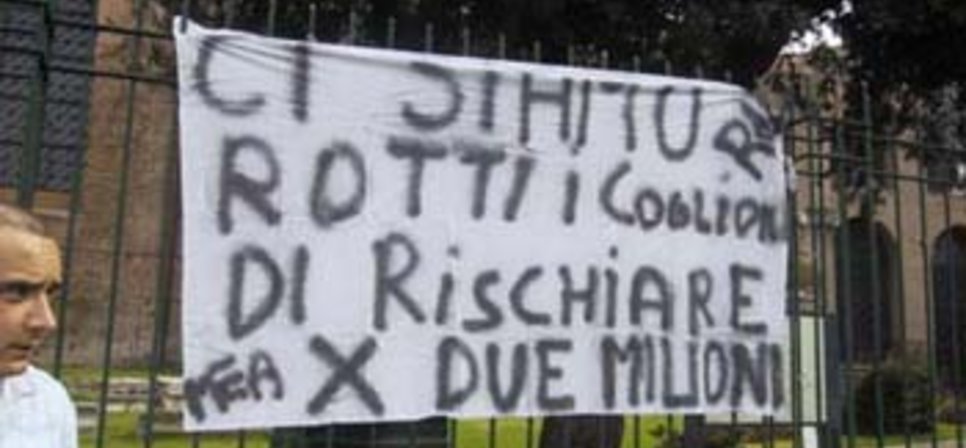 CI SIAMO
ROTTI I COGLIONI
DI RISCHIARE
X DUE MILIONI